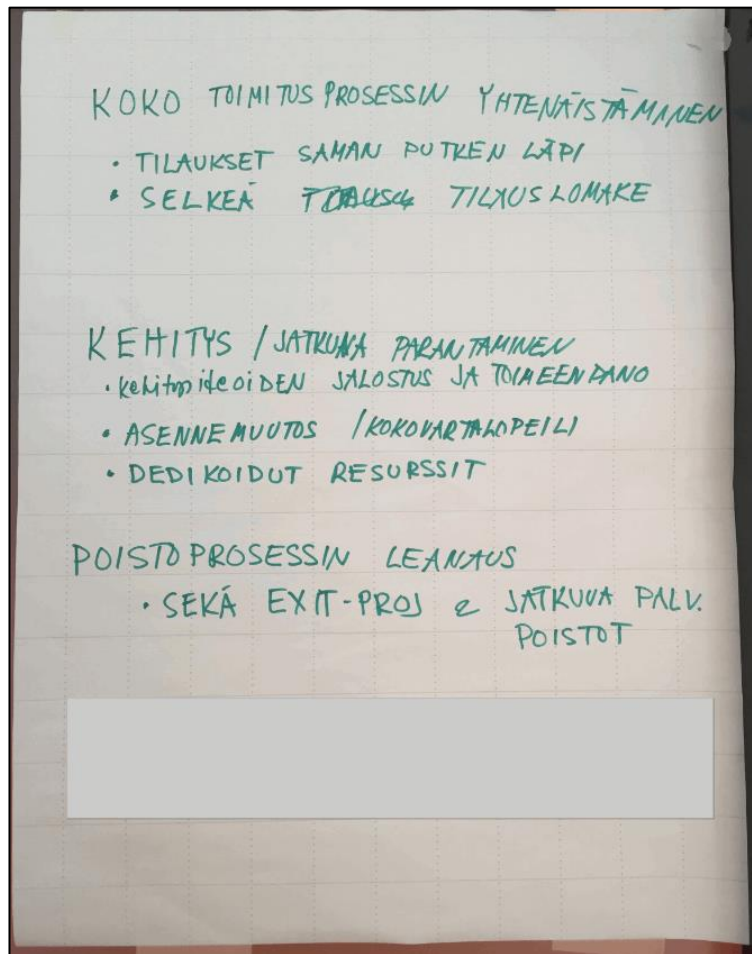 KOKO TOIMITUSPROSESSIN YHTENÄISTÄMINEN
• TILAUKSET SAMAN PUTKEN LÄPI
• SELKEÄ TILAUSLOMAKE
KEHITYS / JATKUVA PARANTAMINEN
• kehitysideoiDEN JALOSTUS JA TOIMEENPANO
• ASENNEMUUTOS / KOKOVARTALOPEILI
• DEDIKOIDUT RESURSSIT
POISTOPROSESSIN LEANAUS
• SEKÄ EXIT-PROJ & JATKUVA PALV.
POISTOT